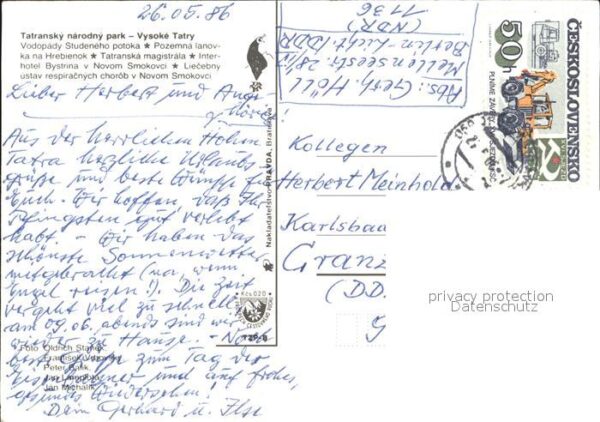 26.05.86
Tatranský národný park – Vysoké Tatry
Vodopády Studeného potoka ★ Pozemná lanov-
ka na Hrebienok ★ Tatranská magistrála ★ Inter-
hotel Bystrina v Novom Smokovci ★ Liečebný
ustav respiračných chorôb v Novom Smokovci
Lieber Herbert und Ange-
hörige
Aus der herrlichen Hohen
Tatra herzliche Urlaubs-
grüße und beste Wünsche für
Euch. Wir hoffen, daß Ihr
Pfingsten gut verlebt
habt. – Wir haben das
schönste Sonnenwetter
mitgebracht (na, wenn
Engel reisen!). Die Zeit
vergeht viel zu schnell
am 09.06. abends sind wir
wieder zu Hause. – Noch
beste zum Tag der
Eisenbahner und auf frohes,
gesundes Wiedersehen!
Dein Gerhard u. Ilse
Foto Oldrich Straník
František
Peter Bank
Jan
Jan Michalík
Nakladateľstvo PRAVDA, Bratislava
Kčs 0,20
Abs.: Gerh. Höll
Mellenseestr. 28/
Berlin-Licht. DDR
1136
(NDR)
ČESKOSLOVENSKO
50 h
Kollegen
Herbert Meinhold
Karlsbad
Granz
(D.D.
privacy protection
Datenschutz